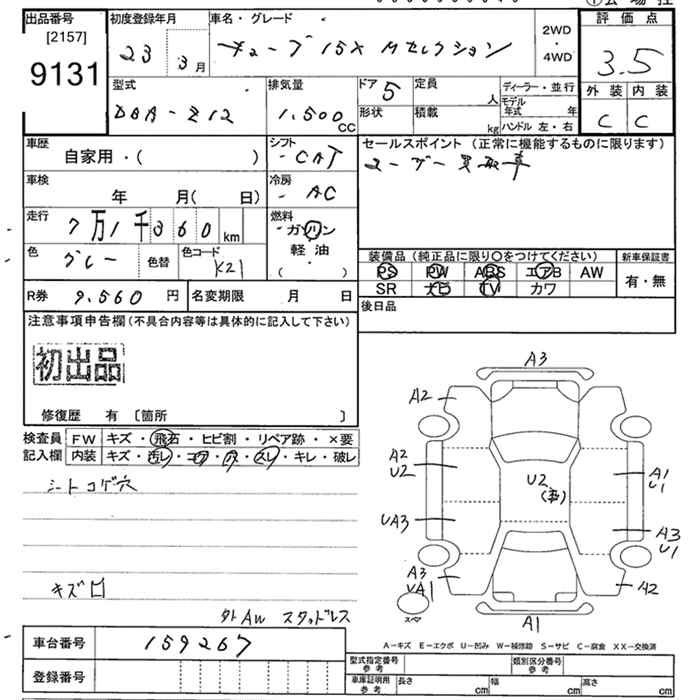 出品番号
[2157]
9131
初度登録年月
23 3月
車名・グレード
キューブ 15X Mセレクション
2WD
・
4WD
評価点
3.5
外装 内装
C C
型式
DBA-Z12
排気量
1,500cc
ドア 5
形状
定員 人
積載 kg
ディーラー・並行
モデル年式 年
ハンドル 左・右
車歴
自家用・( )
シフト
CAT
車検
年 月( 日)
冷房
AC
走行
7万1千360km
燃料
ガソリン
軽・油
( )
色
グレー
色替
色コード
K21
R券 9,560円
名変期限 月 日
セールスポイント (正常に機能するものに限ります)
ユーザー買取車
装備品 (純正品に限り〇をつけてください)
PS PW ABS エアB AW
SR ナビ TV カワ
新車保証書
有・無
後日品
注意事項申告欄(不具合内容等は具体的に記入して下さい)
初出品
修復歴 有 〔箇所 〕
検査員
記入欄
FW キズ・飛石・ヒビ割・リペア跡・×要
内装 キズ・汚レ・コゲ・穴・スレ・キレ・破レ
シートコゲ穴
キズ口
外AW スタッドレス
A3
A2
A2
U2
U2
A1
U1
UA3
A3
U1
A3
UA1
A2
スペア
A1
A-キズ E-エクボ U-凹み W-補修跡 S-サビ C-腐食 XX-交換済
車台番号 159267
登録番号
型式指定番号
参考
類別区分番号
参考
車庫証明用
参考
長さ cm 幅 cm 高さ cm